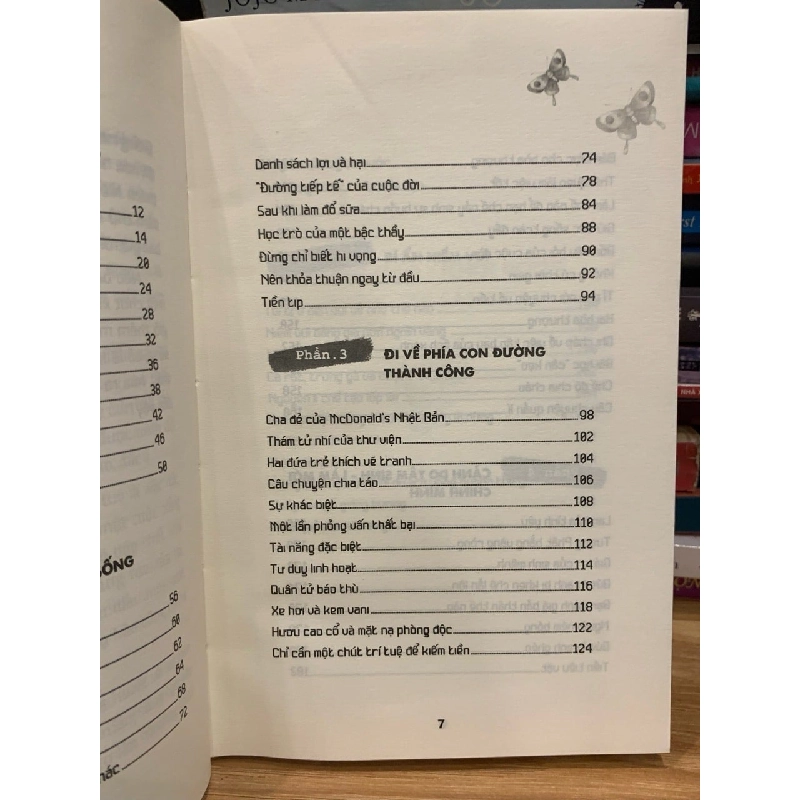 12
14
20
24
28
32
36
38
42
46
50
SỐNG
56
60
62
64
68
72
Danh sách lợi và hại 74
"Đường tiếp tế" của cuộc đời 78
Sau khi làm đổ sữa 84
Học trò của một bậc thầy 88
Đừng chỉ biết hi vọng 90
Nên thỏa thuận ngay từ đầu 92
Tiền típ 94
Phần.3
ĐI VỀ PHÍA CON ĐƯỜNG
THÀNH CÔNG
Cha đẻ của McDonald's Nhật Bản 98
Thám tử nhí của thư viện 102
Hai đứa trẻ thích vẽ tranh 104
Câu chuyện chia táo 106
Sự khác biệt 108
Một lần phỏng vấn thất bại 110
Tài năng đặc biệt 112
Tư duy linh hoạt 114
Quân tử báo thù 116
Xe hơi và kem vani 118
Hươu cao cổ và mặt nạ phòng độc 122
Chỉ cần một chút trí tuệ để kiếm tiền 124
7